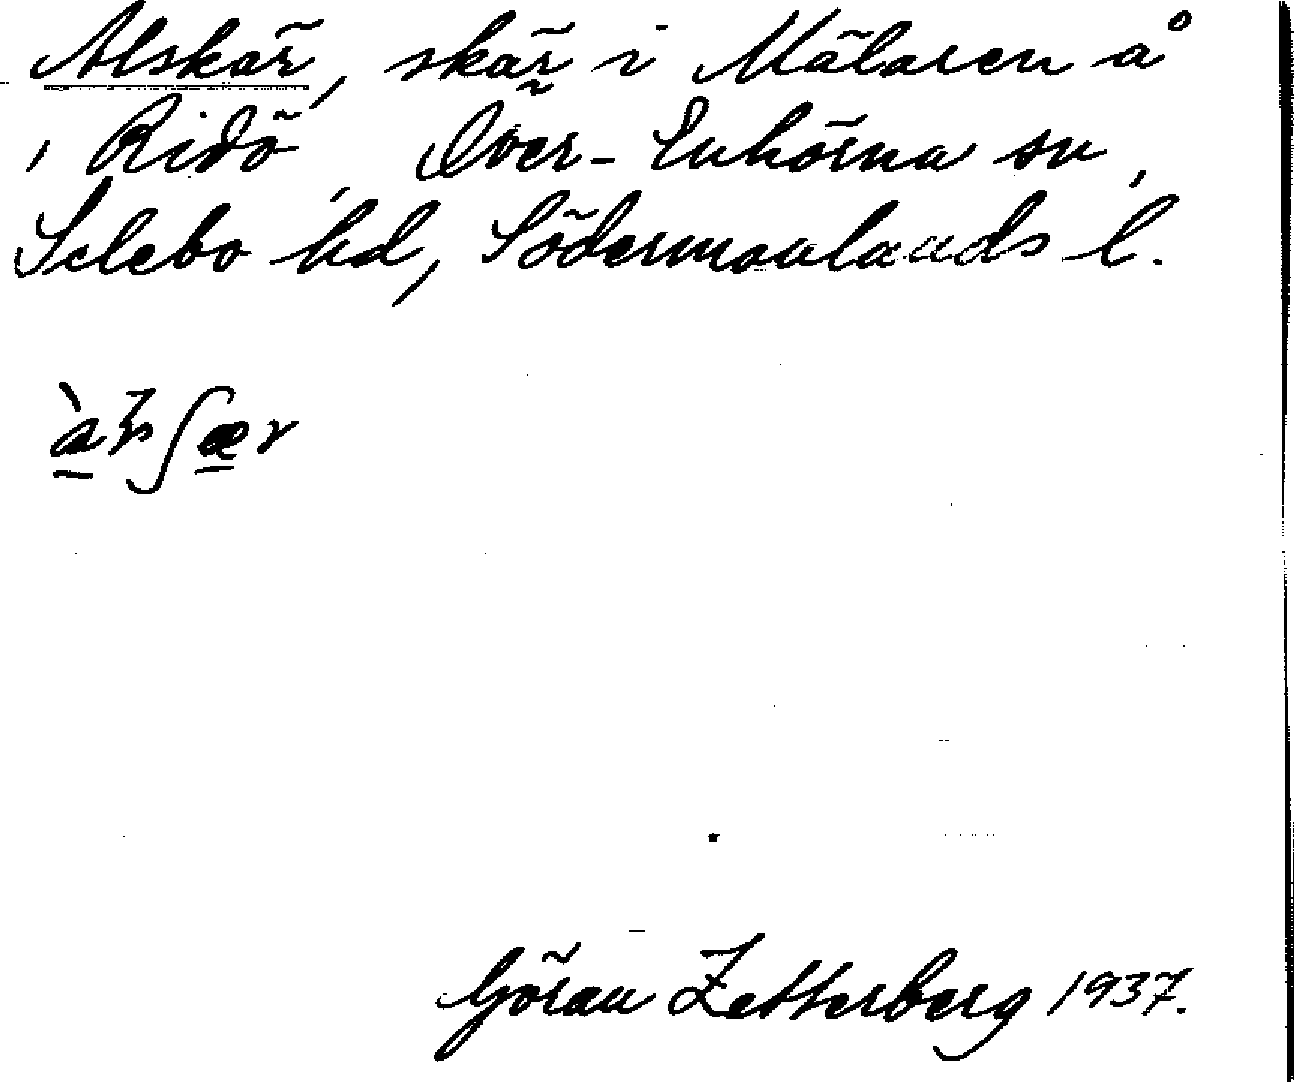 Alskär, skär i Mälaren å
Ridö, Över-Enhörna sn,
Selebo hd, Södermanlands l.
Göran Zetterberg 1937.